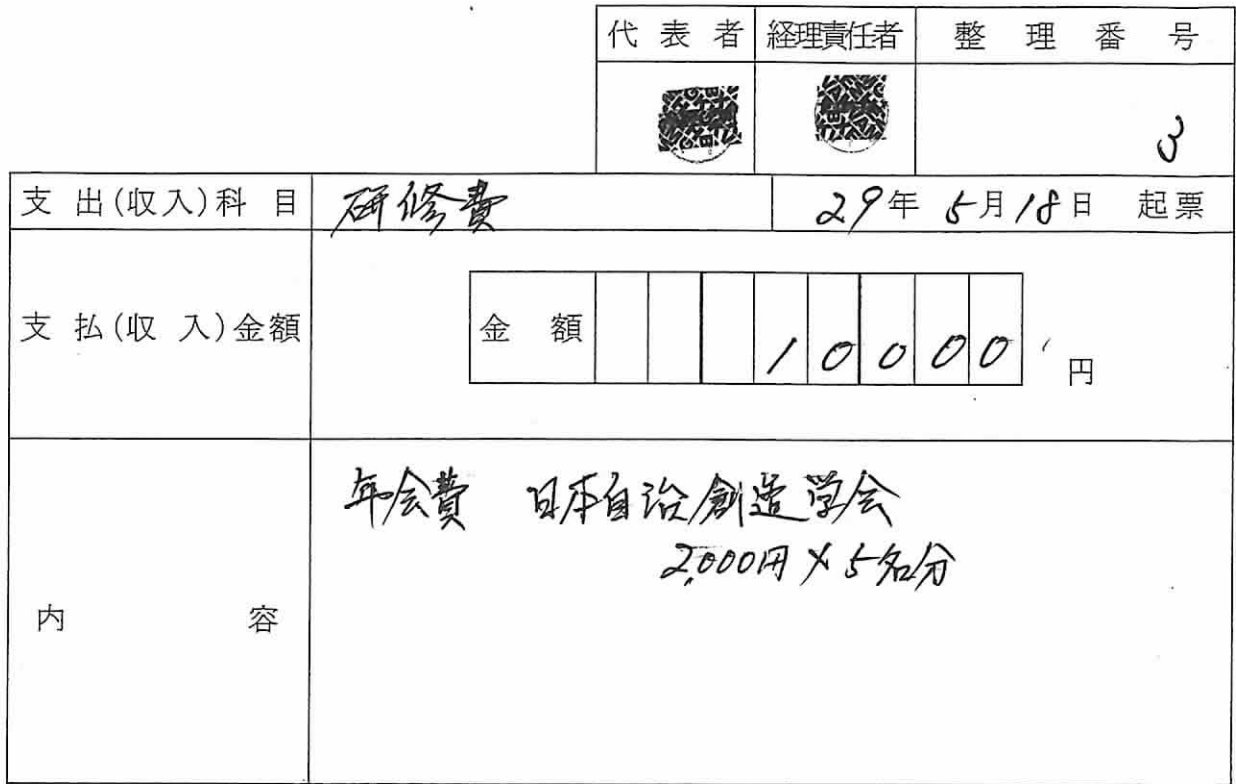 代表者 経理責任者 整理番号
3
支出(収入)科目 研修費 29年5月18日 起票
支払(収入)金額 金額 10000 円
年会費 日本自治創造学会
2,000円×5名分
内容